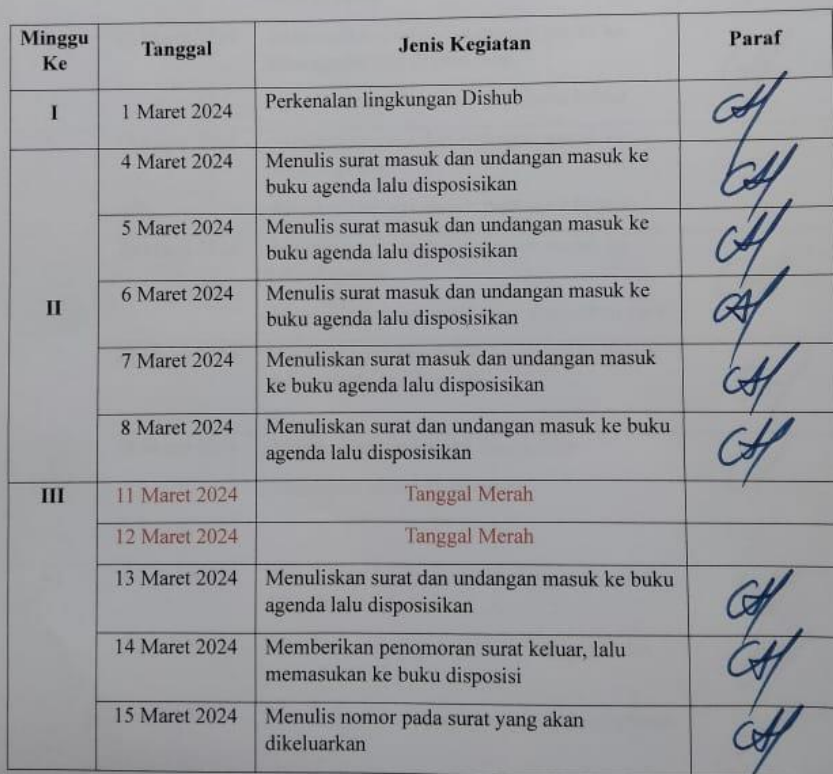 Minggu Ke Tanggal Jenis Kegiatan Paraf
I 1 Maret 2024 Perkenalan lingkungan Dishub
II 4 Maret 2024 Menulis surat masuk dan undangan masuk ke
buku agenda lalu disposisikan
5 Maret 2024 Menulis surat masuk dan undangan masuk ke
buku agenda lalu disposisikan
6 Maret 2024 Menulis surat masuk dan undangan masuk ke
buku agenda lalu disposisikan
7 Maret 2024 Menuliskan surat masuk dan undangan masuk
ke buku agenda lalu disposisikan
8 Maret 2024 Menuliskan surat dan undangan masuk ke buku
agenda lalu disposisikan
III 11 Maret 2024 Tanggal Merah
12 Maret 2024 Tanggal Merah
13 Maret 2024 Menuliskan surat dan undangan masuk ke buku
agenda lalu disposisikan
14 Maret 2024 Memberikan penomoran surat keluar, lalu
memasukan ke buku disposisi
15 Maret 2024 Menulis nomor pada surat yang akan
dikeluarkan